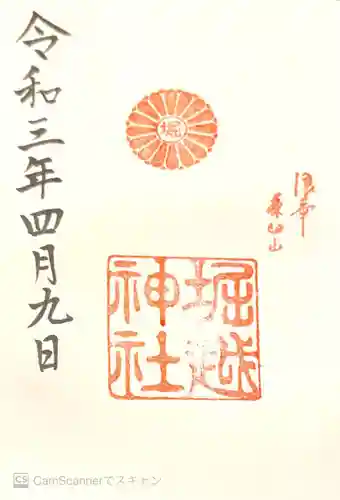 令和三年四月九日
堀
堀越
神社
CS CamScannerでスキャン